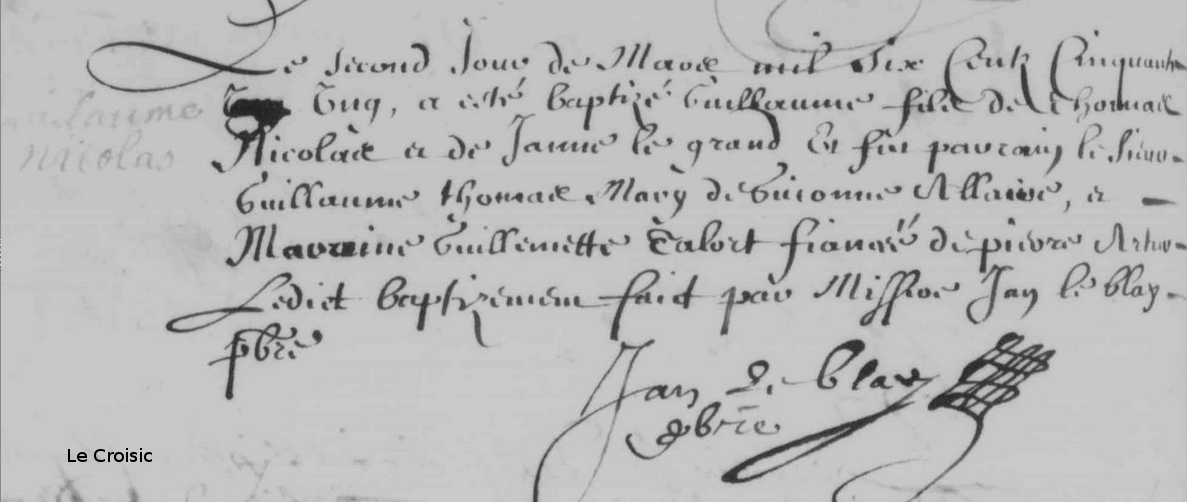 Le second Jour de Mars mil six Centz Cinquante
Ung, a esté baptizé Guillaume filz de Thomas
Guillaume
Nicolas
Nicolas et de Janne le grand Et fut parrain le Sieur
Guillaume thomas Mary de Guionne Allaire, et
Marraine Guillemette Calort fiancée de pierre
Ledict baptizement faict par Missire Jan le blay
pbre
Jan Le blay
pbre
Le Croisic